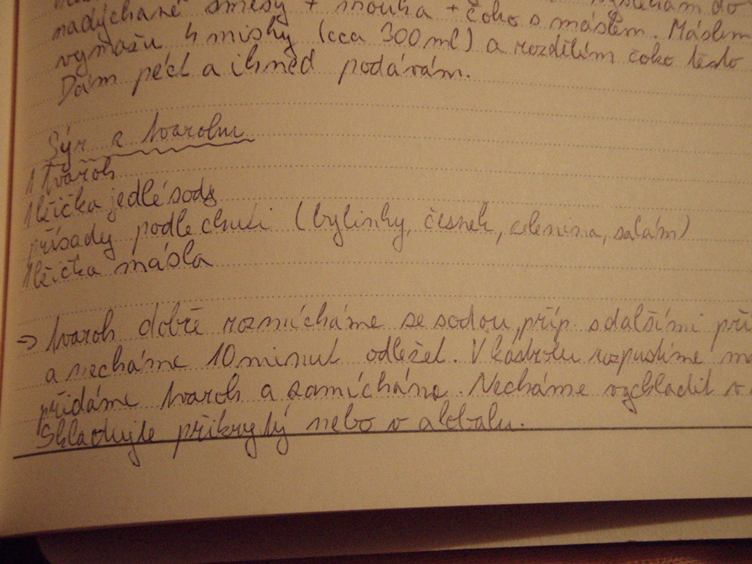 nadýchané směsy + mouka + čoko s máslem. Máslem
vymažu 4 misky (cca 300 ml) a rozdělím čoko těsto
Dám péct a ihned podávám.
Sýr z tvarohu
1 tvaroh
1 lžička jedlé sody
přísady podle chuti (bylinky, česnek, zelenina, salám)
1 lžička másla
→ tvaroh dobře rozmícháme se sodou, příp. s dalšími pří
a necháme 10 minut odležet. V kastrolu rozpustíme má
přidáme tvaroh a zamícháme. Necháme vychladit v
Skladujte přikrytý nebo v alobalu.